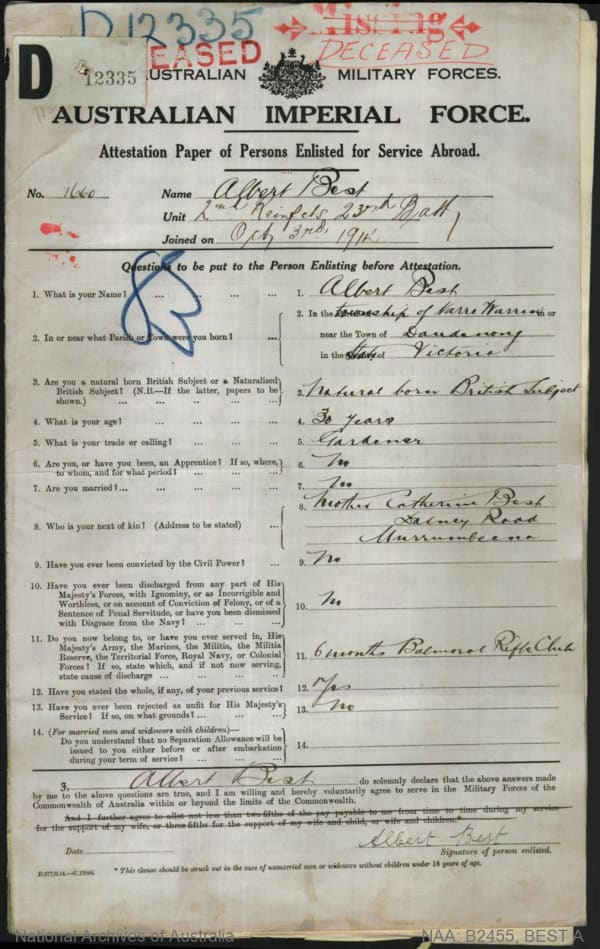 D12335
Missing
DECEASED
DECEASED
D
12335
AUSTRALIAN MILITARY FORCES.
AUSTRALIAN IMPERIAL FORCE.
Attestation Paper of Persons Enlisted for Service Abroad.
No. 1660 Name Albert Best
Unit 2nd Reinfcts, 23rd Batt,
Joined on 3rd, 191
Questions to be put to the Person Enlisting before Attestation.
1. What is your Name? ... ... ... ... 1. Albert Best
2. In or near what Parish or Town were you born? ... 2. In the township of Narre Warren in or
near the Town of Dandenong
in the State of Victoria
3. Are you a natural born British Subject or a Naturalized
British Subject? (N.B.—If the latter, papers to be
shown.) ... ... ... ... ... 3. Natural born British Subject
4. What is your age? ... ... ... ... 4. 30 years
5. What is your trade or calling? ... ... ... 5. Gardener
6. Are you, or have you been, an Apprentice? If so, where,
to whom, and for what period? ... ... ... 6. No
7. Are you married?... ... ... ... ... 7. No
8. Who is your next of kin? (Address to be stated) ... 8. Mother Catherine Best
Road
Murrumbeena
9. Have you ever been convicted by the Civil Power? ... 9. No
10. Have you ever been discharged from any part of His
Majesty's Forces, with Ignominy, or as Incorrigible and
Worthless, or on account of Conviction of Felony, or of a
Sentence of Penal Servitude, or have you been dismissed
with Disgrace from the Navy? ... ... ... 10. No
11. Do you now belong to, or have you ever served in, His
Majesty's Army, the Marines, the Militia, the Militia
Reserve, the Territorial Force, Royal Navy, or Colonial
Forces? If so, state which, and if not now serving,
state cause of discharge ... ... ... ... 11. 6 months Balmoral Rifle Club
12. Have you stated the whole, if any, of your previous service? 12. Yes
13. Have you ever been rejected as unfit for His Majesty's
Service? If so, on what grounds? ... ... ... 13. No
14. (For married men and widowers with children)—
Do you understand that no Separation Allowance will be
issued to you either before or after embarkation
during your term of service? ... ... ... 14.
3. Albert Best do solemnly declare that the above answers made
by me to the above questions are true, and I am willing and hereby voluntarily agree to serve in the Military Forces of the
Commonwealth of Australia within or beyond the limits of the Commonwealth.
And I further agree to allot not less than two fifths of the pay payable to me from time to time during my service
for the support of my wife, or three fifths for the support of my wife and child, or wife and children.*
Albert Best
Date Signature of person enlisted.
* This clause should be struck out in the case of unmarried men or widowers without children under 18 years of age.
National Archives of Australia NAA: B2455, BEST A